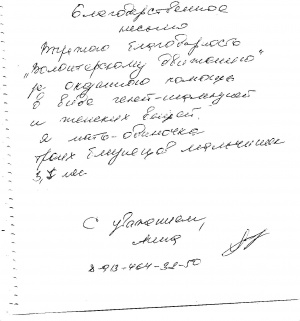 Благодарственное
письмо
Выражаю благодарность
"Волонтёрскому движению"
за оказанную помощь
в виде
и женских вещей.
я мать-одиночка
троих близнецов мальчишек
3,5 лет
С уважением,
Анна
8-913-464-32-50